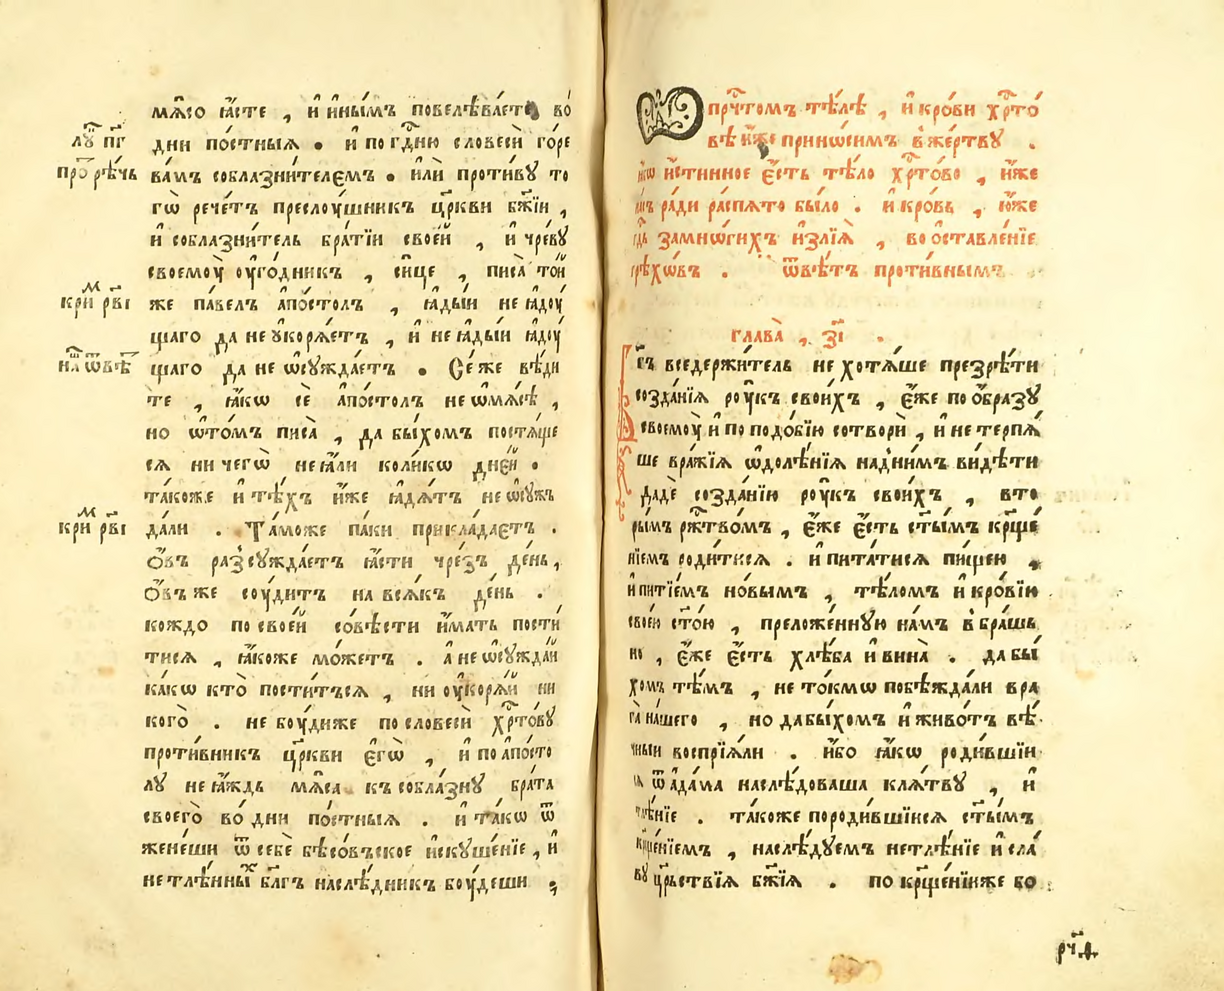 мѧ҃со ꙗ҆́сте , и҆ и҆ны́мъ повелѣва́ете во
дни по́стныѧ • и҆ по гдⷭ҇ню словесѝ го́ре
ва́мъ соблазни́телємъ • и҆лѝ проти́ву то
гѡ̀ рече́тъ преслоу́шникъ цр҃кви бж҃їи ,
и҆ соблазни́тель бра́тїи свое́й , и҆ чре́вꙋ
своемоу̀ оу҆го́дникъ , си́це , писа̀ то́й
же па́вел апо́столъ , ꙗ҆ды́й не ꙗ҆доу́
щаго да не ᲂу҆корѧ́етъ , и҆ не ꙗ҆ды́й ꙗ҆доу́
щаго да не ѡ҆суждаетъ • Се́ же вѣ́ди
те , ꙗ҆́кѡ сѐ апо́столъ не ѡ҆ мѧ́сѣ ,
но ѡ҆ то́мъ писа̀ , да бы́хомъ постѧ́ще
сѧ ничего̀ не ꙗ҆́ли коли́кѡ дне́й •
та́коже и҆ тѣ́хъ и҆́же ꙗ҆дѧ́тъ не ѡ҆сꙋж
да́ли . Та́може па́ки прикла́даетъ .
ѻ҆́въ разсужда́етъ ꙗ҆́сти чре́зъ де́нь ,
ѻ҆́въ же соу́дитъ на всѧ́къ де́нь .
кождо по свое́й со́вѣсти и҆́мать пости́
тисѧ , ꙗ҆́коже мо́жетъ . а҆ не ѡ҆сꙋжда́й
ка́кѡ кто̀ пости́тъсѧ , ни оу҆корѧ́й ни
кого̀ . не боу́ди же по словесѝ хрⷭ҇то́вꙋ
проти́вникъ цр҃кви є҆гѡ̀ , и҆ по апо́сто
лꙋ не ꙗ҆́ждь мѧ́са къ собла́знꙋ бра́та
своего̀ во́ дни по́стныѧ . и҆ та́кѡ ѿ
жене́ши ѿ себѐ бѣсо́въское и҆скуше́нїе , и҆
нетлѣ́нныⷯ бл҃гъ наслѣ́дникъ боу́деши ;
лꙋⷦ҇ п҃г
про рѣ́чь
кри рв҃і
на ѿвѣ
кри рв҃і
Ѻ҆ прⷱ҇томъ тѣ́лѣ , и҆ кро́ви хрⷭ҇то́
вѣ ю҆́же прино́симъ в же́ртвꙋ .
ꙗ҆́кѡ и҆́стинное є҆́сть тѣ́ло хрⷭ҇то́во , и҆́же
на́съ ра́ди распѧ́то бы́ло . и҆ кро́вь , ю҆́же
гдⷭ҇ь за мнѡ́гихъ и҆злїѧ̀ , во ѡ҆ставле́нїе
грѣхѡ́въ . ѿвѣ́тъ проти́внымъ .
глава̀ , з҃і .
Гд҃ь вседержи́тель не хотѧ́ше презрѣ́ти
созда́нїѧ роу́къ свои́хъ , є҆́же по ѻ҆́бразꙋ
своемоу̀ и҆ по подо́бїю сотворѝ , и҆ не терпѧ́
ше вра́жїѧ ѡ҆долѣ́нїѧ над ни́мъ ви́дѣти
Дадѐ созда́нїю роу́къ свои́хъ , вто
ры́мъ ржⷭ҇тво́мъ , є҆́же є҆́сть ст҃ы́мъ крⷭ҇ще́
нїемъ роди́тисѧ . и҆ пита́тисѧ пи́щею ,
и҆ питїе́мъ но́вымъ , тѣ́ломъ и҆ кро́вїю
свое́ю ст҃о́ю , преложе́нную на́мъ в бра́шь
но , є҆́же є҆́сть хлѣ́ба и҆ вина̀ . да бы́
хомъ тѣ́мъ , не то́кмѡ побѣжда́ли вра
га̀ на́шего , но да бы́хомъ и҆ живо́тъ вѣ́
чный воспрїѧ́ли . и҆́бо ꙗ҆́кѡ роди́вшїи
сѧ ѿ ада́ма наслѣ́доваша клѧ́твꙋ , и҆
тлѣ́нїе . та́коже породи́вшїисѧ ст҃ы́мъ
крⷭ҇ще́нїемъ , наслѣ́дуемъ нетлѣ́нїе и҆ сла́
вꙋ црⷭ҇твїѧ бж҃їѧ . по крⷭ҇ще́нїи же бо
рч҃д